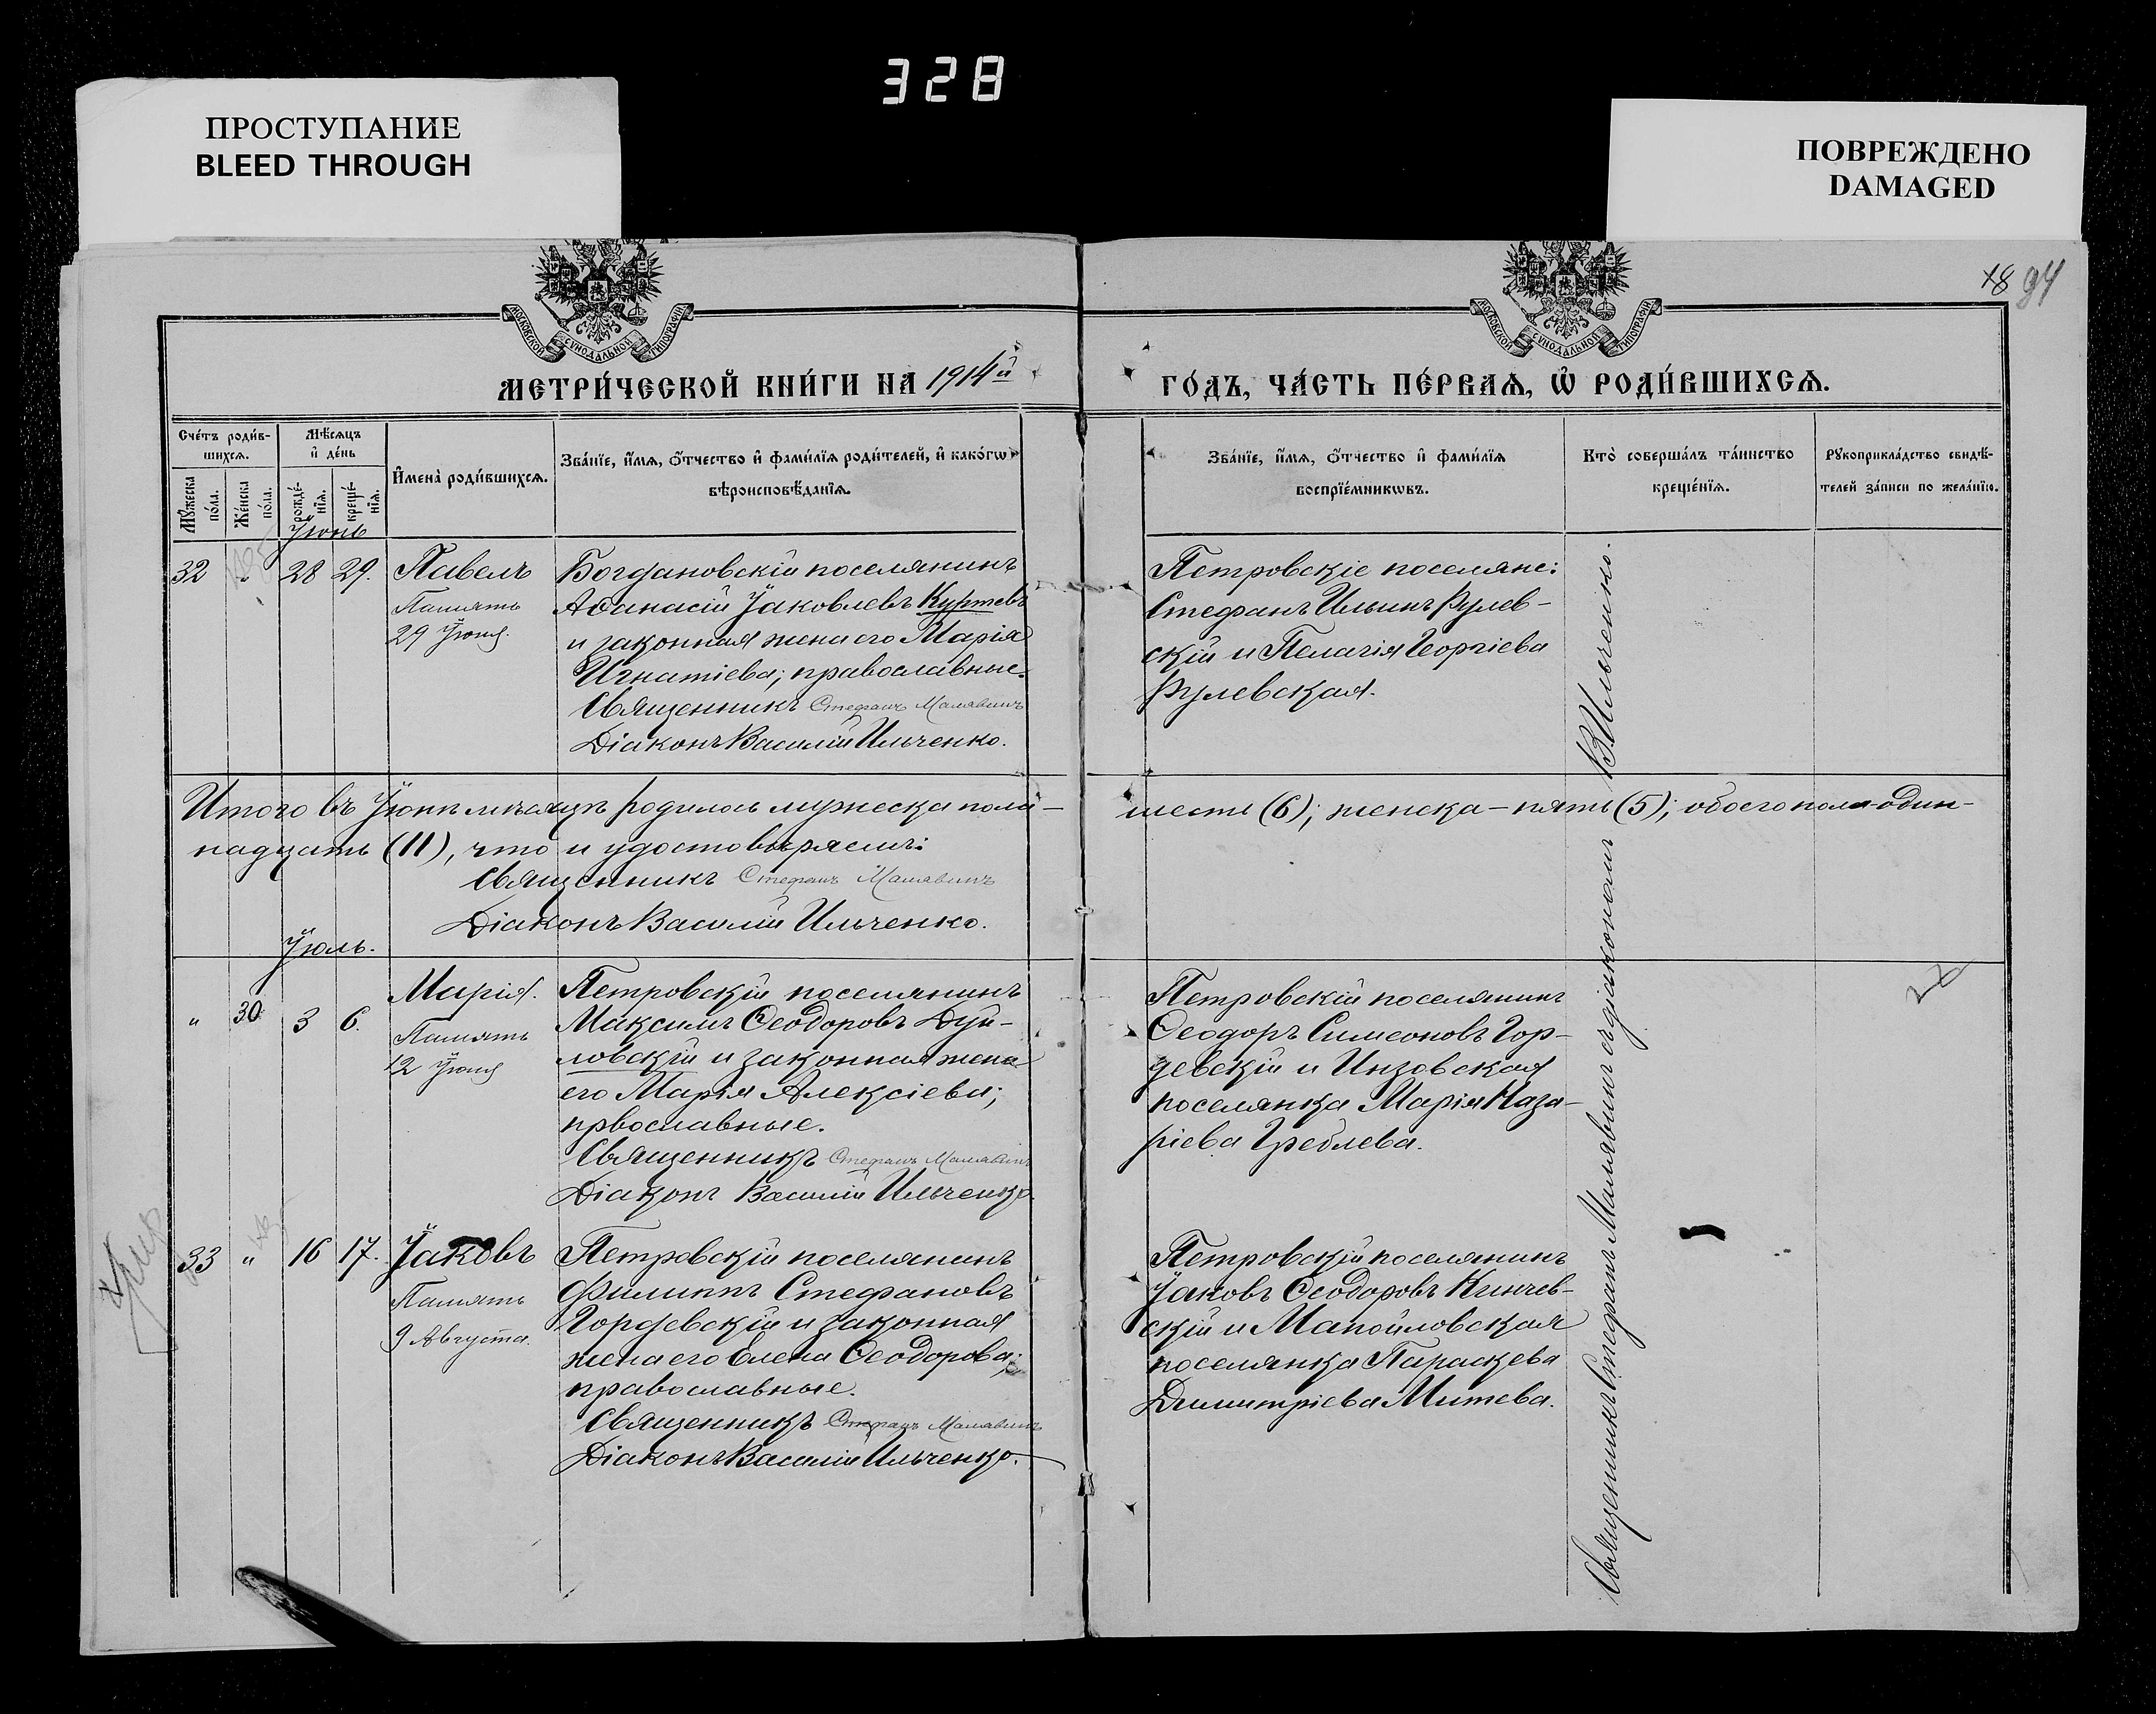 328
ПРОСТУПАНИЕ
BLEED THROUGH
ПОВРЕЖДЕНО
DAMAGED
МОСКОВСКОЙ СѴНОДАЛЬНОЙ ТИПОГРАФІИ
МОСКОВСКОЙ СѴНОДАЛЬНОЙ ТИПОГРАФІИ
18 94
МЕТРИ́ЧЕСКОЙ КНИ́ГИ НА 1914й
ГО́ДЪ, ЧА́СТЬ ПЕ́РВАѦ, Ѡ҆ РОДИ́ВШИХСѦ.
Сче́тъ роди́в-
шихсѧ.
Мѣ́сѧцъ
и҆ де́нь
Мꙋ́жеска по́ла.
Же́нска по́ла.
рожде́-
нїѧ.
креще́-
нїѧ.
И҆мена̀ роди́вшихсѧ.
Зва́нїе, и҆́мѧ, ѻ҆́тчество и҆ фами́лїѧ роди́телей, и҆ како́гѡ
вѣроисповѣ́данїѧ.
Зва́нїе, и҆́мѧ, ѻ҆́тчество и҆ фами́лїѧ
воспрїе́мникѡвъ.
Кто̀ соверша́лъ та́инство
креще́нїѧ.
Рꙋкоприкла́дство свидѣ́-
телей за́писи по жела́нїю.
Іюнь
32 " 28 29. Павелъ
Память
29 Іюня.
Богдановскій поселянинъ
Аѳанасій Іаковлевъ Куртевъ
и законная жена его Марія
Игнатіева; православные.
Священникъ Стефанъ Малявинъ
Діаконъ Василій Ильченко.
Петровскіе поселяне:
Стефанъ Ильинъ Рулев-
скій и Пелагія Георгіева
Рулевская.
Итого въ Іюнѣ мѣсяцѣ родилось мужеска пола-
шесть (6); женска - пять (5); обоего пола - один-
надцать (11), что и удостовѣряемъ:
Священникъ Стефанъ Малявинъ
Діаконъ Василій Ильченко.
Іюль.
" 30 3 6. Марія.
Память
12 Іюля
Петровскій поселянинъ
Максимъ Ѳеодоровъ Дуй-
ловскій и законная жена
его Марія Алексіева;
првославные.
Священникъ Стефанъ Малявинъ
Діаконъ Василій Ильченко.
Петровскій поселянинъ
Ѳеодоръ Симеоновъ Гор-
девскій и Инзовская
поселянка Марія Наза-
ріева Греблева.
33 " 16 17. Іаковъ
Память
9 Августа.
Петровскій поселянинъ
Филиппъ Стефановъ
Гордевскій и законная
жена его Елена Ѳеодорова;
православные.
Священникъ Стефанъ Малявинъ
Діаконъ Василій Ильченко.
Петровскій поселянинъ
Іаковъ Ѳеодоровъ Кинчев-
скій и Манойловская
поселянка Параскева
Димитріева Митева.
Священникъ Стефанъ Малявинъ съ діакономъ В. Ильченко.